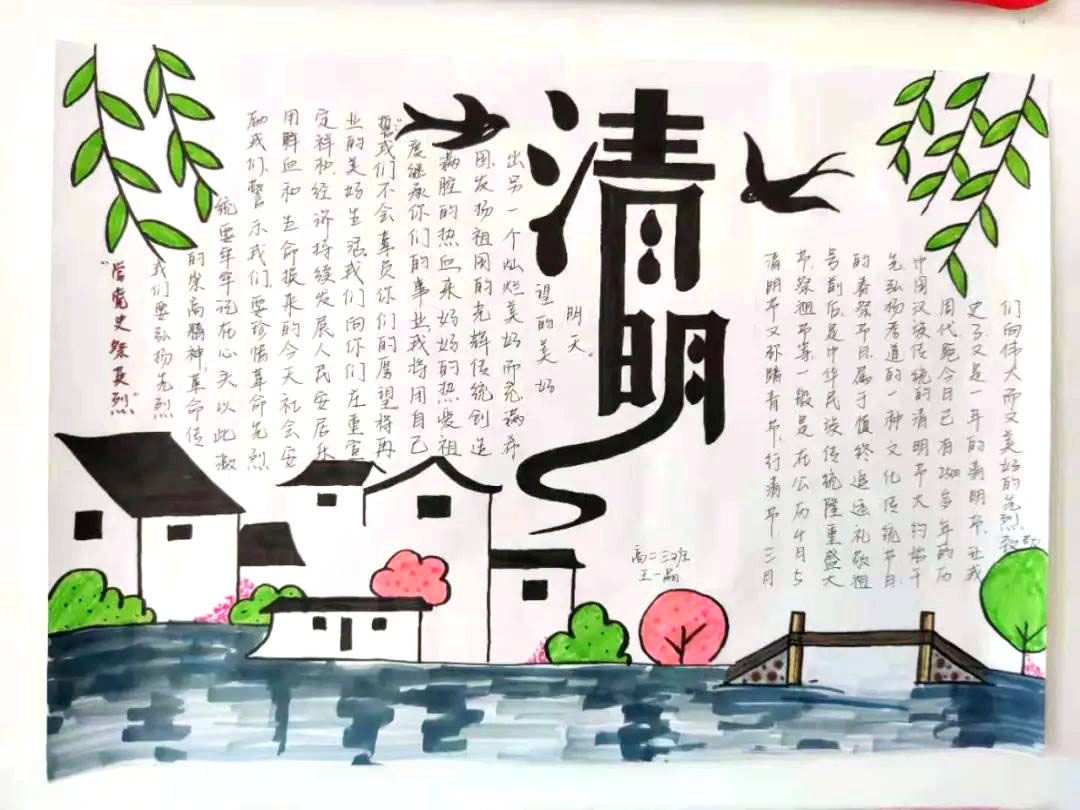 清明
"学党史 祭英烈"
我们要弘扬先烈
的崇高精神,革命传
统要牢牢记在心头.以此激
励我们、警示我们.要珍惜革命先烈
用鲜血和生命换来的今天社会安
定祥和.经济持续发展人民安居乐
业的美好生活.我们向你们庄重宣
誓:"我们不会辜负你们的厚望.将再
度继承你们的事业.我将用自己
满腔的热血来好好的热爱祖
国.发扬祖国的光辉传统创造
出另一个灿烂美好而充满希
望的美好
明天。
清明节又称踏青节、行清节三月
节.祭祖节等.一般是在公历4月5
号前后.是中华民族传统隆重盛大
的春祭节日.属于慎终追远礼敬祖
先弘扬孝道的一种文化传统节日.
中国汉族传统的清明节大约始于
周代.距今日已有2500多年的历
史了.又是一年的清明节.让我
们向伟大而又美好的先烈致敬
高二三班
王一晶